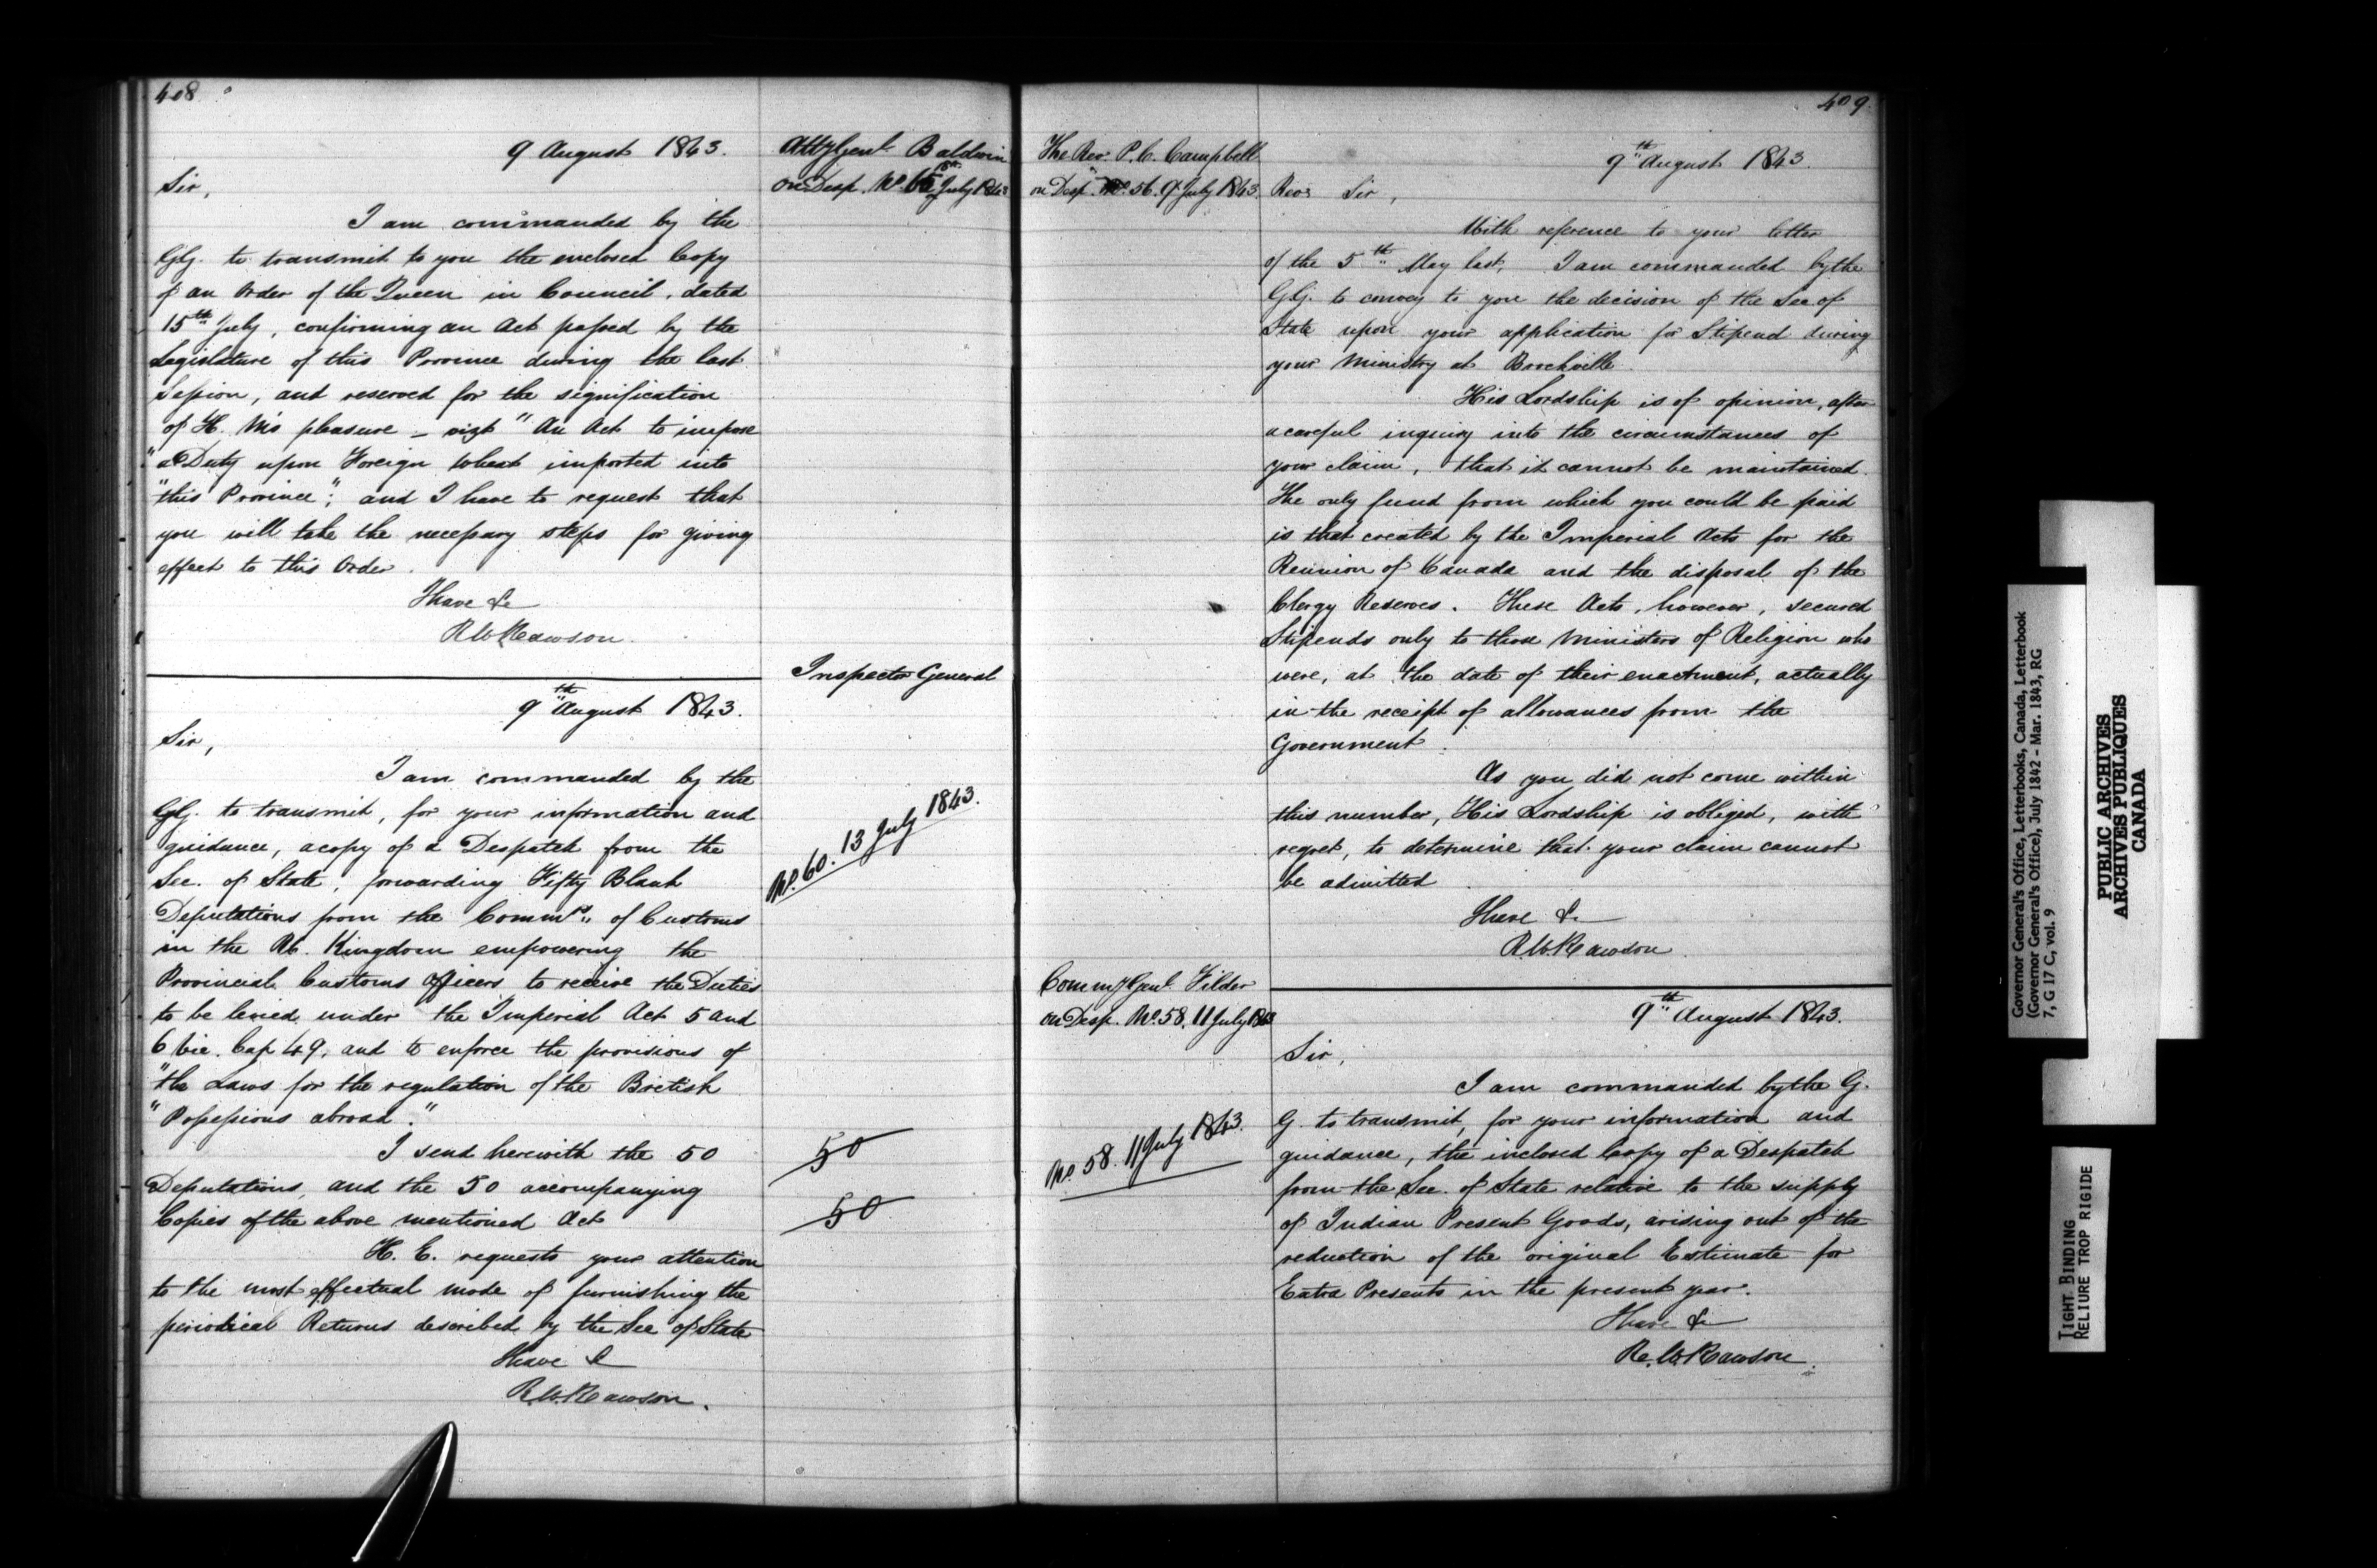 408
9 August 1843.
Atty Genl. Baldwin
on Desp. No. July 1843
Sir,
I am commanded by the
GG. to transmit to you the enclosed Copy
of an Order of the Queen in Council, dated
15th July, confirming an Act passed by the
Legislature of this Province during the last
Session, and reserved for the signification
of H. M's pleasure – vizt "An Act to impose
"a Duty upon Foreign Wheat imported into
"this Province"; and I have to request that
you will take the necessary steps for giving
effect to this Order.
I have &c
R W Rawson.
Inspector General
9th August 1843.
Sir,
I am commanded by the
GG. to transmit, for your information and
guidance, a copy of a Despatch from the
No. 60. 13 July 1843.
Sec. of State, forwarding Fifty Blank
Deputations from the Commrs. of Customs
in the U. Kingdom empowering the
Provincial Customs Officers to receive the Duties
to be levied under the Imperial Act 5 and
6 Vic. Cap 49, and to enforce the provisions of
"the Laws for the regulation of the British
"Possessions abroad."
I send herewith the 50
50
Deputations, and the 50 accompanying
Copies of the above mentioned Act
50
H. E. requests your attention
to the most effectual mode of furnishing the
periodical Returns described by the Sec of State
I have &
R.W. Rawson.
409.
The Rev. P. C. Campbell
on Desp. No. 56. 9 July 1843.
9th August 1843.
Revd Sir,
With reference to your letter
of the 5th May last, I am commanded by the
GG. to convey to you the decision of the Sec. of
State upon your application for Stipend during
your Ministry at Brockville.
His Lordship is of opinion, after
a careful inquiry into the circumstances of
your claim, that it cannot be maintained.
The only fund from which you could be paid
is that created by the Imperial Acts for the
Reunion of Canada and the disposal of the
Clergy Reserves. These Acts, however, secured
Stipends only to those Ministers of Religion who
were, at the date of their enactment, actually
in the receipt of allowances from the
Government.
As you did not come within
this number, His Lordship is obliged, with
regret, to determine that your claim cannot
be admitted
I have &c
R.W. Rawson
Commy Genl. Filder
on Desp. No. 58. 11 July 1843
9th August 1843.
Sir,
I am commanded by the G.
G. to transmit, for your information and
No. 58. 11 July 1843.
guidance, the inclosed Copy of a Despatch
from the Sec. of State relative to the supply
of Indian Present Goods, arising out of the
reduction of the original Estimate for
Extra Presents in the present year.
I have &c
R. W. Rawson.
Governor General's Office, Letterbooks, Canada, Letterbook
(Governor General's Office), July 1842 - Mar. 1843, RG
7, G 17 C, vol. 9
PUBLIC ARCHIVES
ARCHIVES PUBLIQUES
CANADA
TIGHT BINDING
RELIURE TROP RIGIDE